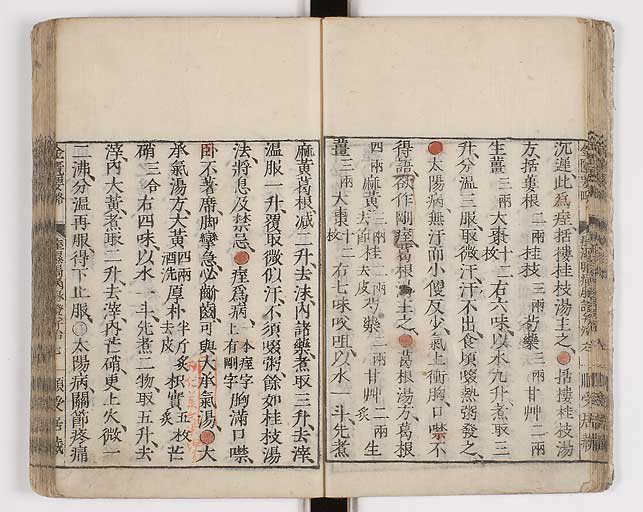 沉遲此為痙括樓桂枝湯主之括樓桂枝湯
方括蔞根二兩桂枝三兩芍藥三兩甘艸二兩
生薑三兩大棗十二枚右六味以水九升煮取三
升分溫三服取微汗汗不出食頃啜熱粥發之
太陽病無汗而小便反少氣上衝胸口噤不
得語欲作剛痙葛根湯主之葛根湯方葛根
四兩麻黃三兩去節桂二兩去皮芍藥二兩甘艸二兩炙生
薑三兩大棗十二枚右七味㕮咀以水一斗先煮
麻黃葛根減二升去沫內諸藥煮取三升去滓
溫服一升覆取微似汗不須啜粥餘如桂枝湯
法將息及禁忌痙為病一本痙字上有剛字胸滿口噤
臥不著席脚攣急必齘齒可與大承氣湯大
承氣湯方大黃四兩酒洗厚朴半斤炙去皮枳實五枚炙芒
硝三合右四味以水一斗先煮二物取五升去
滓內大黃煮取二升去滓內芒硝更上火微一
二沸分溫再服得下止服太陽病關節疼痛
金匱要略